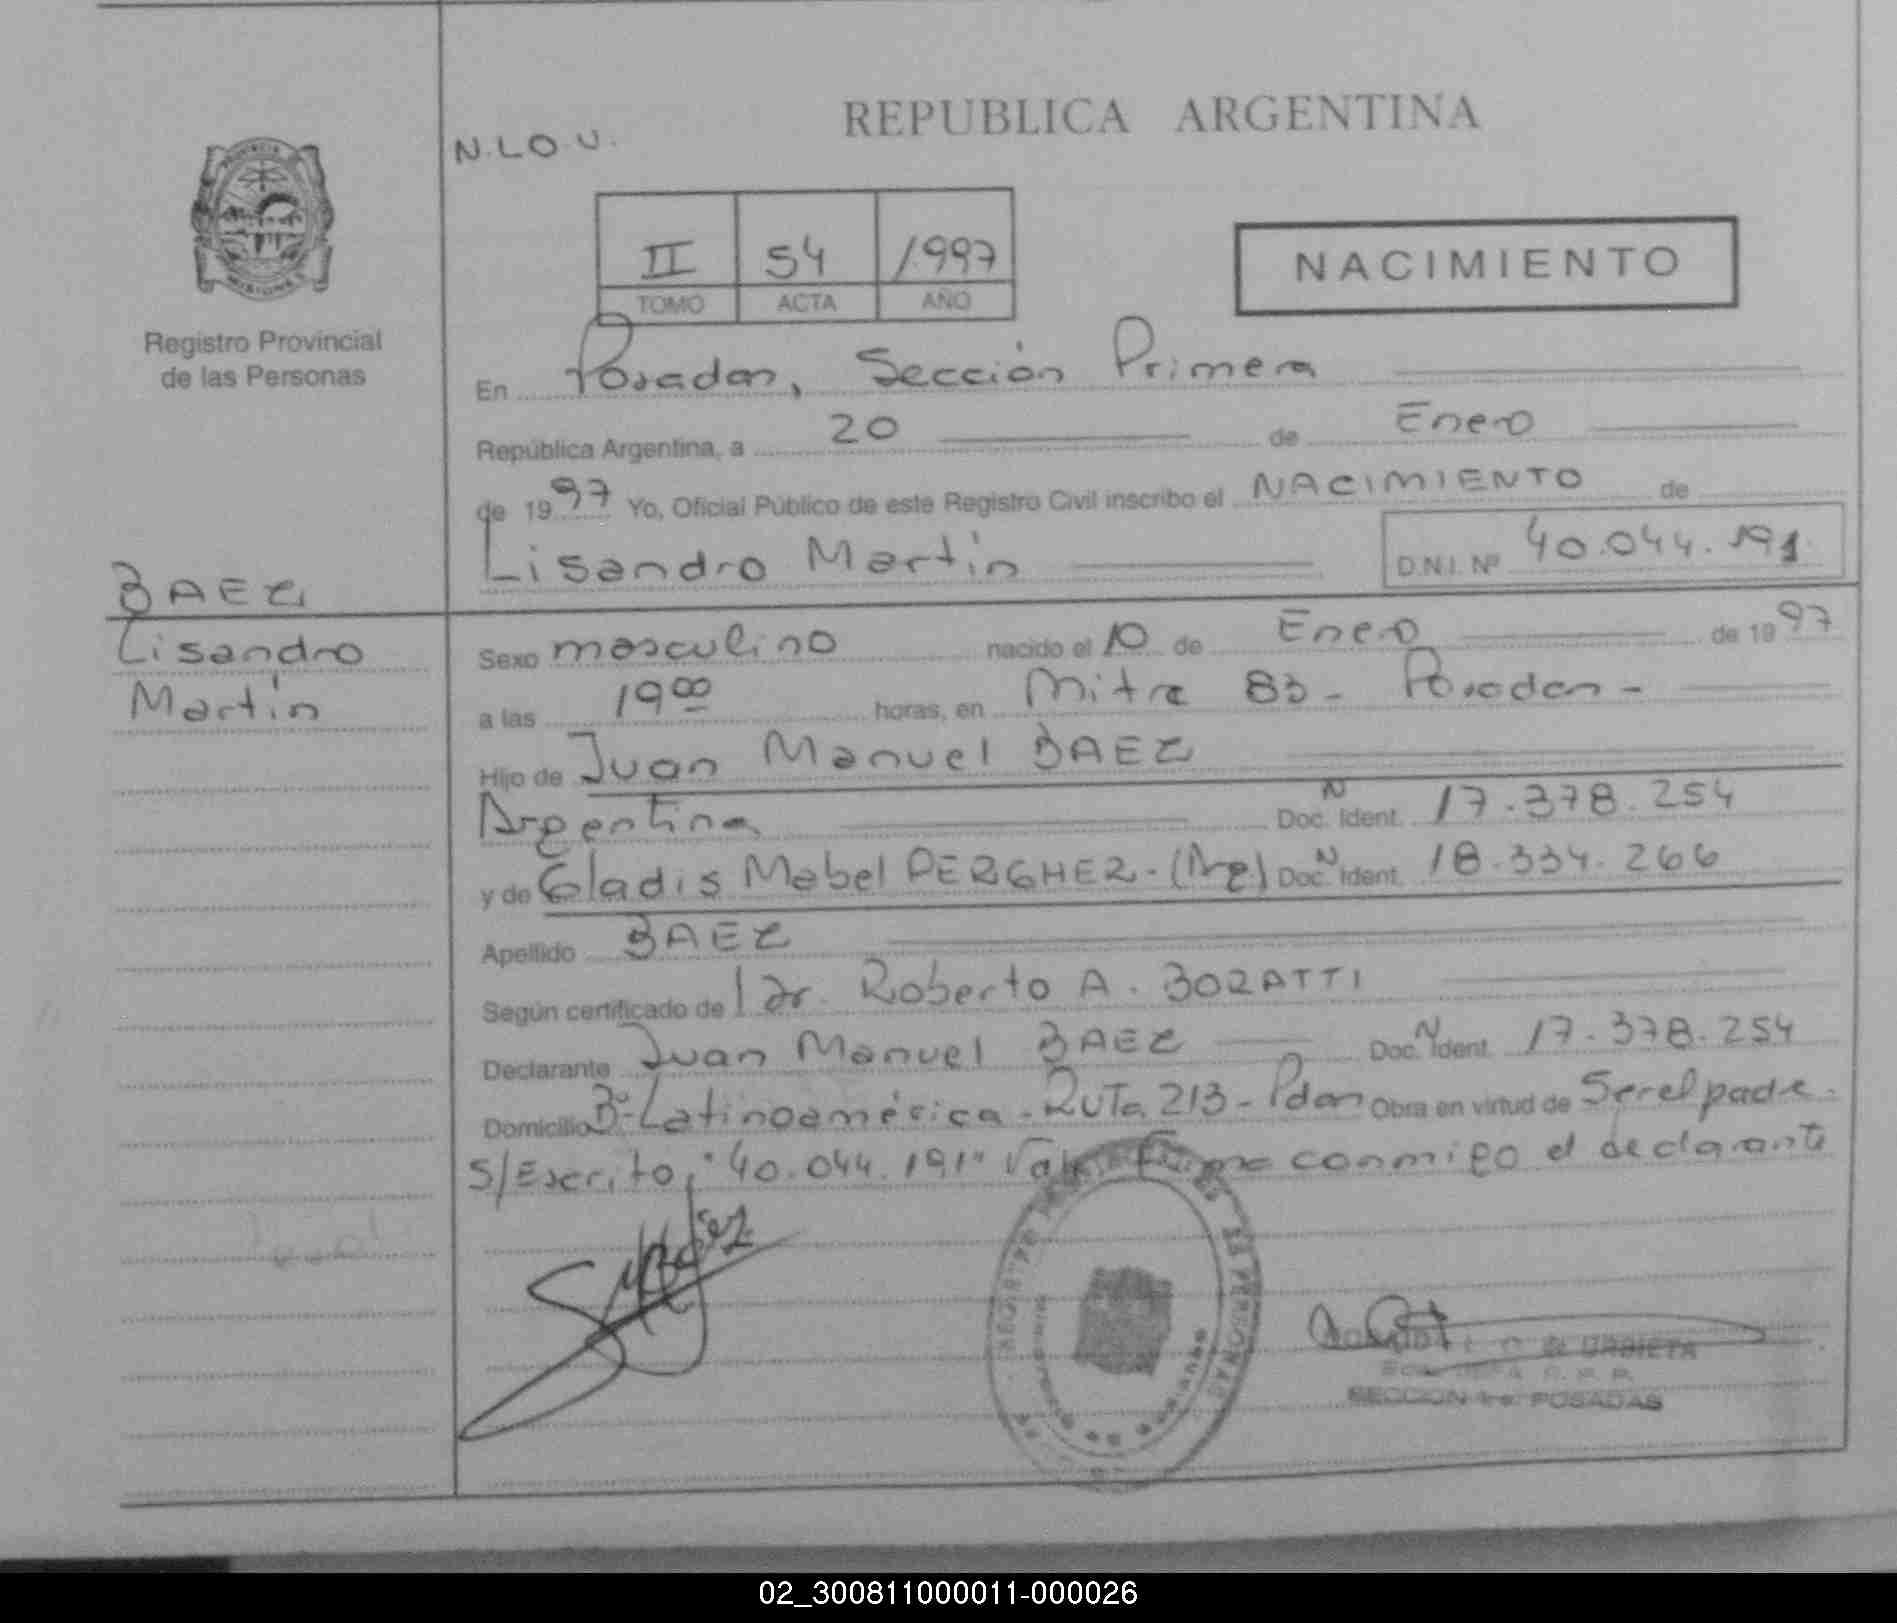 REPUBLICA ARGENTINA
N.L.O.U.
II 54 1997
TOMO ACTA AÑO
NACIMIENTO
Registro Provincial
de las Personas
En Posadas, Sección Primera
República Argentina, a 20 de Enero
de 1997 Yo, Oficial Público de este Registro Civil inscribo el NACIMIENTO de
Lisandro Martín D.N.I. Nº 40.044.191
BAEZ
Lisandro
Martín
Sexo masculino nacido el 10 de Enero de 1997
a las 19 00 horas, en Mitre 83 - Posadas -
Hijo de Juan Manuel BAEZ
Argentina Doc. N Ident. 17.378.254
y de Gladis Mabel PERGHER - (Arg) Doc. N Ident. 18.334.266
Apellido BAEZ
Según certificado de Dr. Roberto A. BORATTI
Declarante Juan Manuel BAEZ Doc. N Ident. 17.378.254
Domicilio Bº Latinoamérica - Ruta 213 - Pdas Obra en virtud de Ser el padre.
S/Escrito: "40.044.191" Vale. Firma conmigo el declarante
Baez
DE URBIETA
SECCION 1ra. POSADAS
02_300811000011-000026